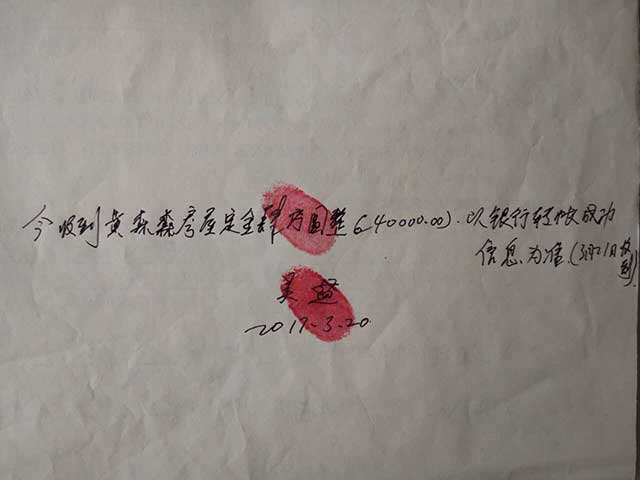 今收到黄森森房屋定金肆万圆整(40000.00).以银行转帐成功
信息为准.(3月21日收到)
莫超
2019.3.20